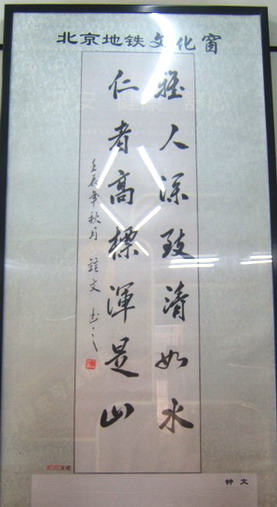 北京地铁文化窗
雅人深致清如水
仁者高标浑是山
壬辰年秋月 钟文书之
钟文